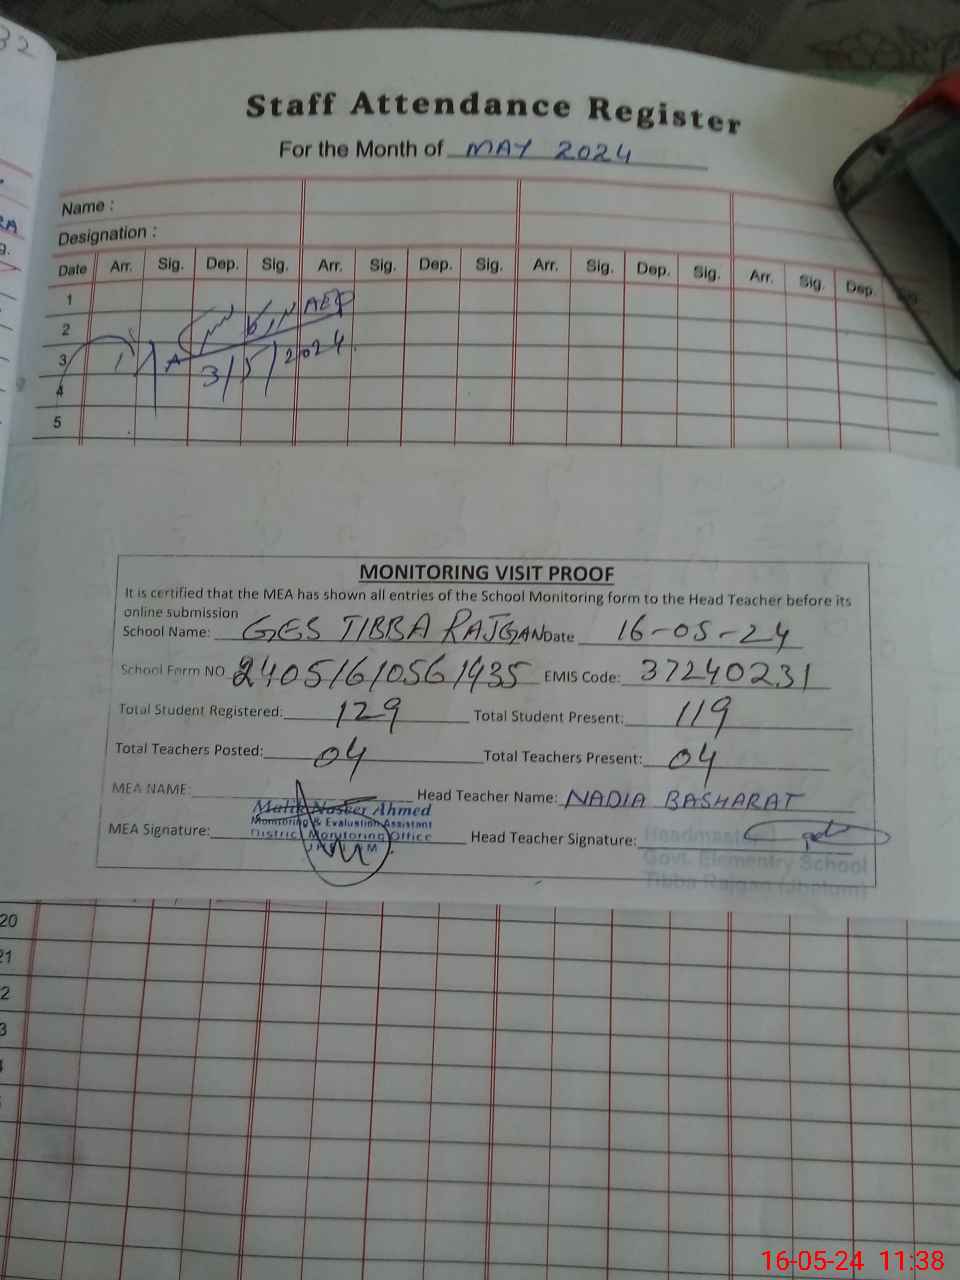 32
Staff Attendance Register
For the Month of MAY 2024
Name :
Designation :
Date Arr. Sig. Dep. Sig. Arr. Sig. Dep. Sig. Arr. Sig. Dep. Sig. Arr. Sig. Dep. Sig.
1
2
3
3/5/2024
4
5
MONITORING VISIT PROOF
It is certified that the MEA has shown all entries of the School Monitoring form to the Head Teacher before its
online submission
School Name: GES TIBBA RAJGAN Date 16-05-24
School Form NO 24051610561935 EMIS Code: 37240231
Total Student Registered: 129 Total Student Present: 119
Total Teachers Posted: 04 Total Teachers Present: 04
MEA NAME: Head Teacher Name: NADIA BASHARAT
Malik Ahmed
Monitoring & Evaluation Assistant
MEA Signature: District Monitoring Office Head Teacher Signature:
Govt. Elementry School
Tibba Rajgan (Jhelum)
20
21
2
3
16-05-24 11:38